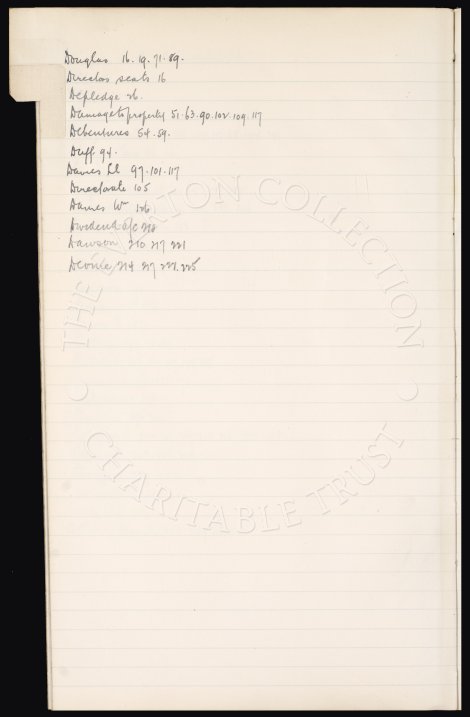 Douglas 16. 19. 71. 89.
Directors seats 16
Depledge 26.
Damage to property 51. 63. 90. 102. 109. 117
Debentures 54. 59.
Duff 94.
Davies Ll 97. 101. 117
Directorate 105
Davies Wm 126
Dividend a/c 218
Dawson 210 217 221
Deville 214 217 221. 225
THE EVERTON COLLECTION
CHARITABLE TRUST